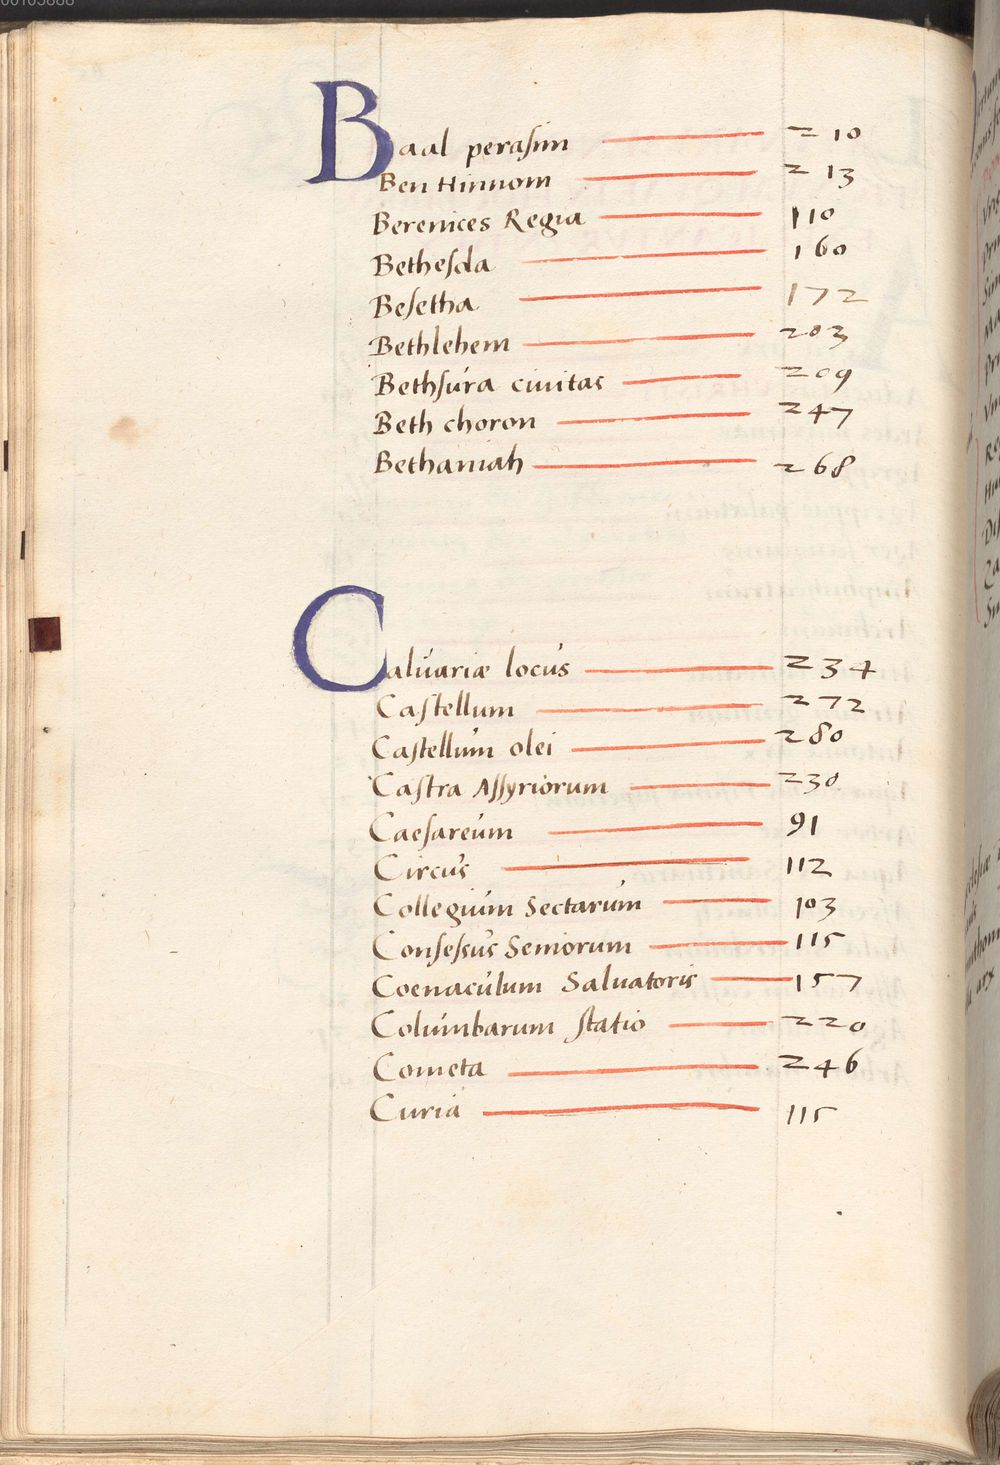 Baal perasim 210
Ben Hinnom 213
Berenices Regia 110
Bethesda 160
Besetha 172
Bethlehem 203
Bethsura civitas 209
Beth choron 247
Bethaniah 268
Caluariæ locus 234
Castellum 272
Castellum olei 280
Castra Assyriorum 230
Caesareum 91
Circus 112
Collegium Sectarum 103
Consessus Seniorum 115
Coenaculum Saluatoris 157
Columbarum statio 220
Cometa 246
Curia 115